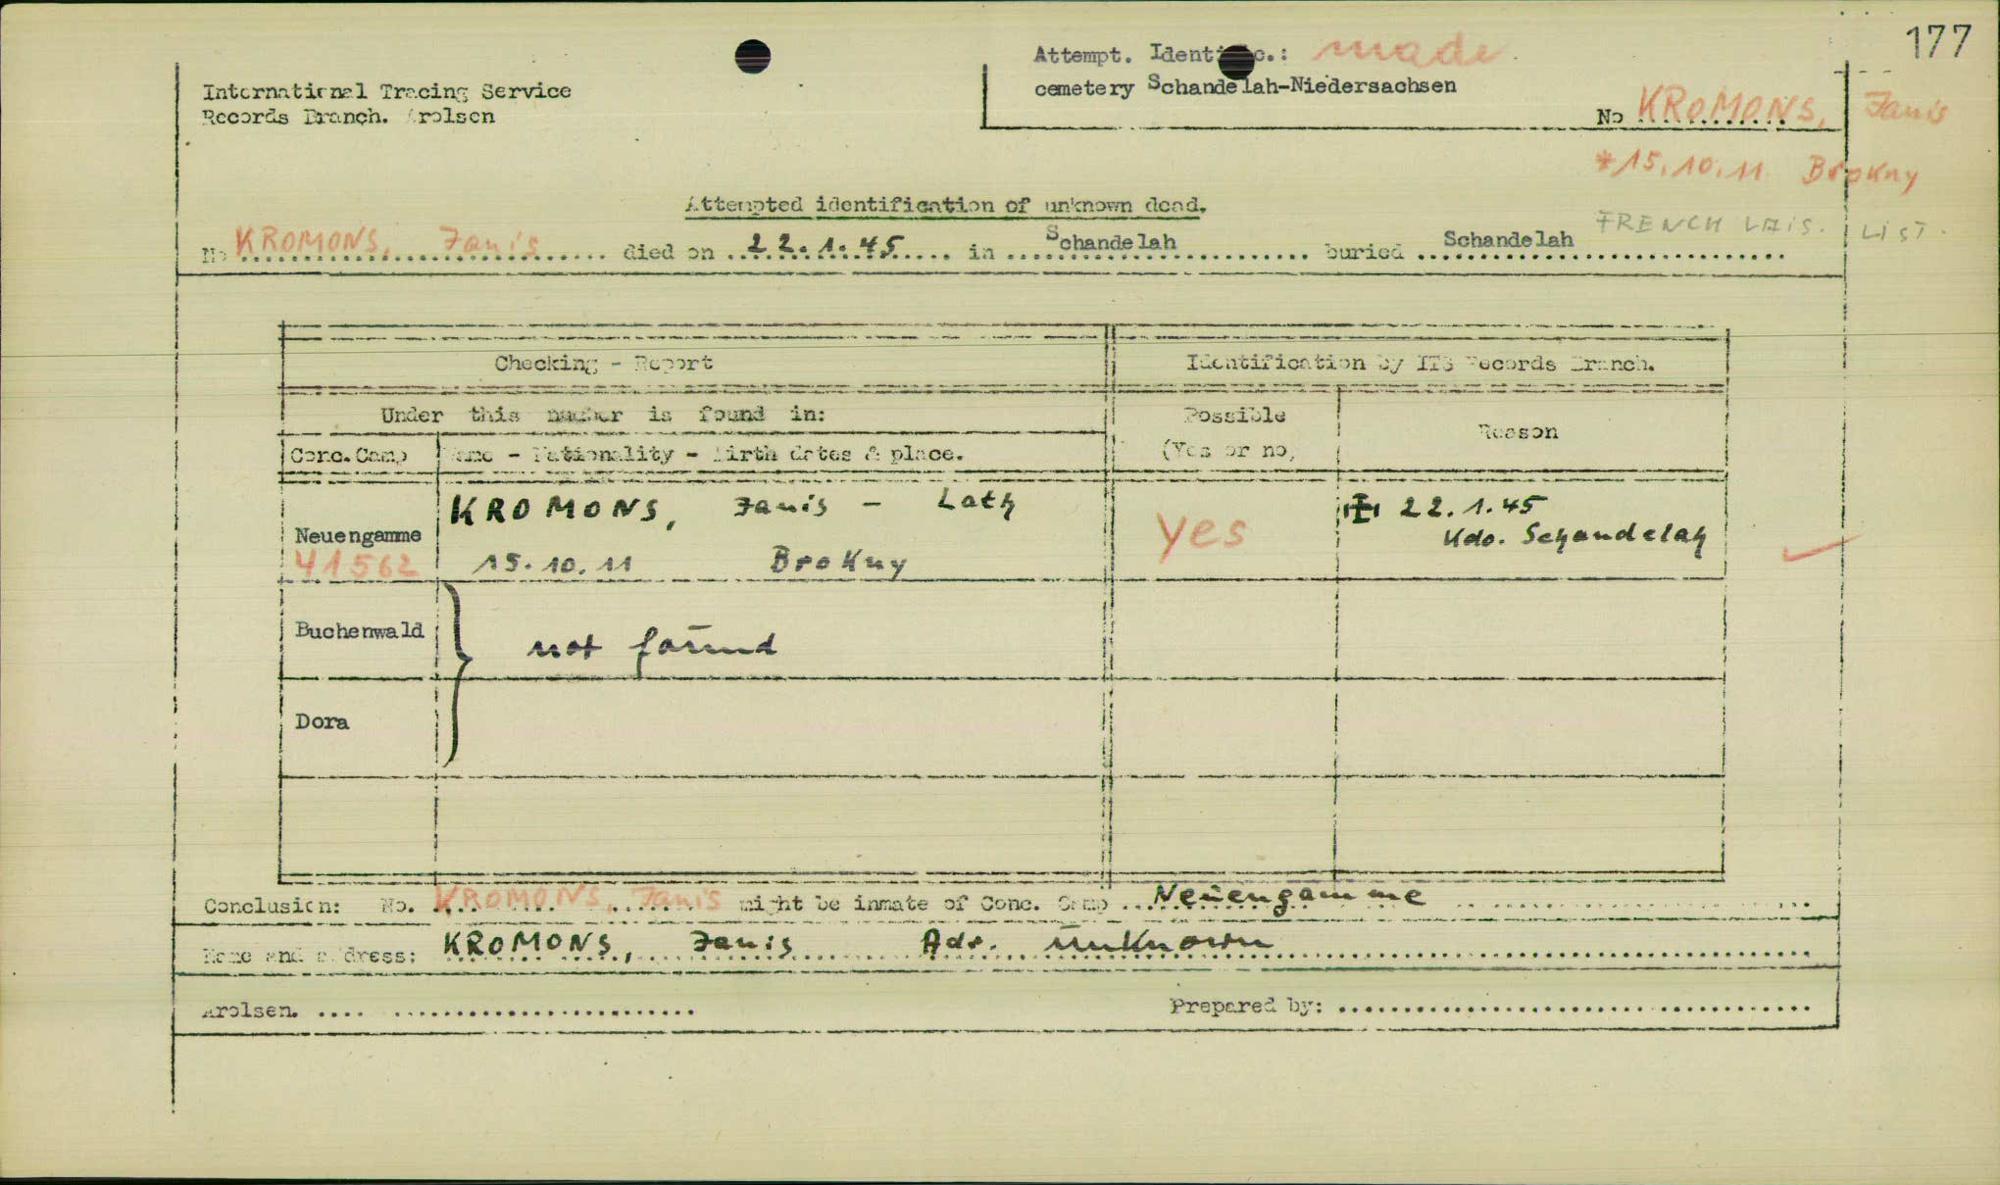 177
Attempt. Identific.: made
cemetery Schandelah-Niedersachsen
International Tracing Service
Records Branch. Arolsen
No KROMONS, Janis
*15.10.11 Brokny
Attempted identification of unknown dead.
FRENCH LAIS. LIST.
No KROMONS, Janis died on 22.1.45 in Schandelah buried Schandelah
Checking - Report Identification by ITS Records Branch.
Under this number is found in: Possible (Yes or no) Reason
Conc. Camp Name - Nationality - Birth dates & place.
Neuengamme KROMONS, Janis - Lath yes 22.1.45
41562 15.10.11 Brokny Kdo. Schandelah
Buchenwald not found
Dora
Conclusion: No. KROMONS, Janis might be inmate of Conc. Camp Neuengamme
Name and address: KROMONS, Janis Adr. unknown
Arolsen. Prepared by: